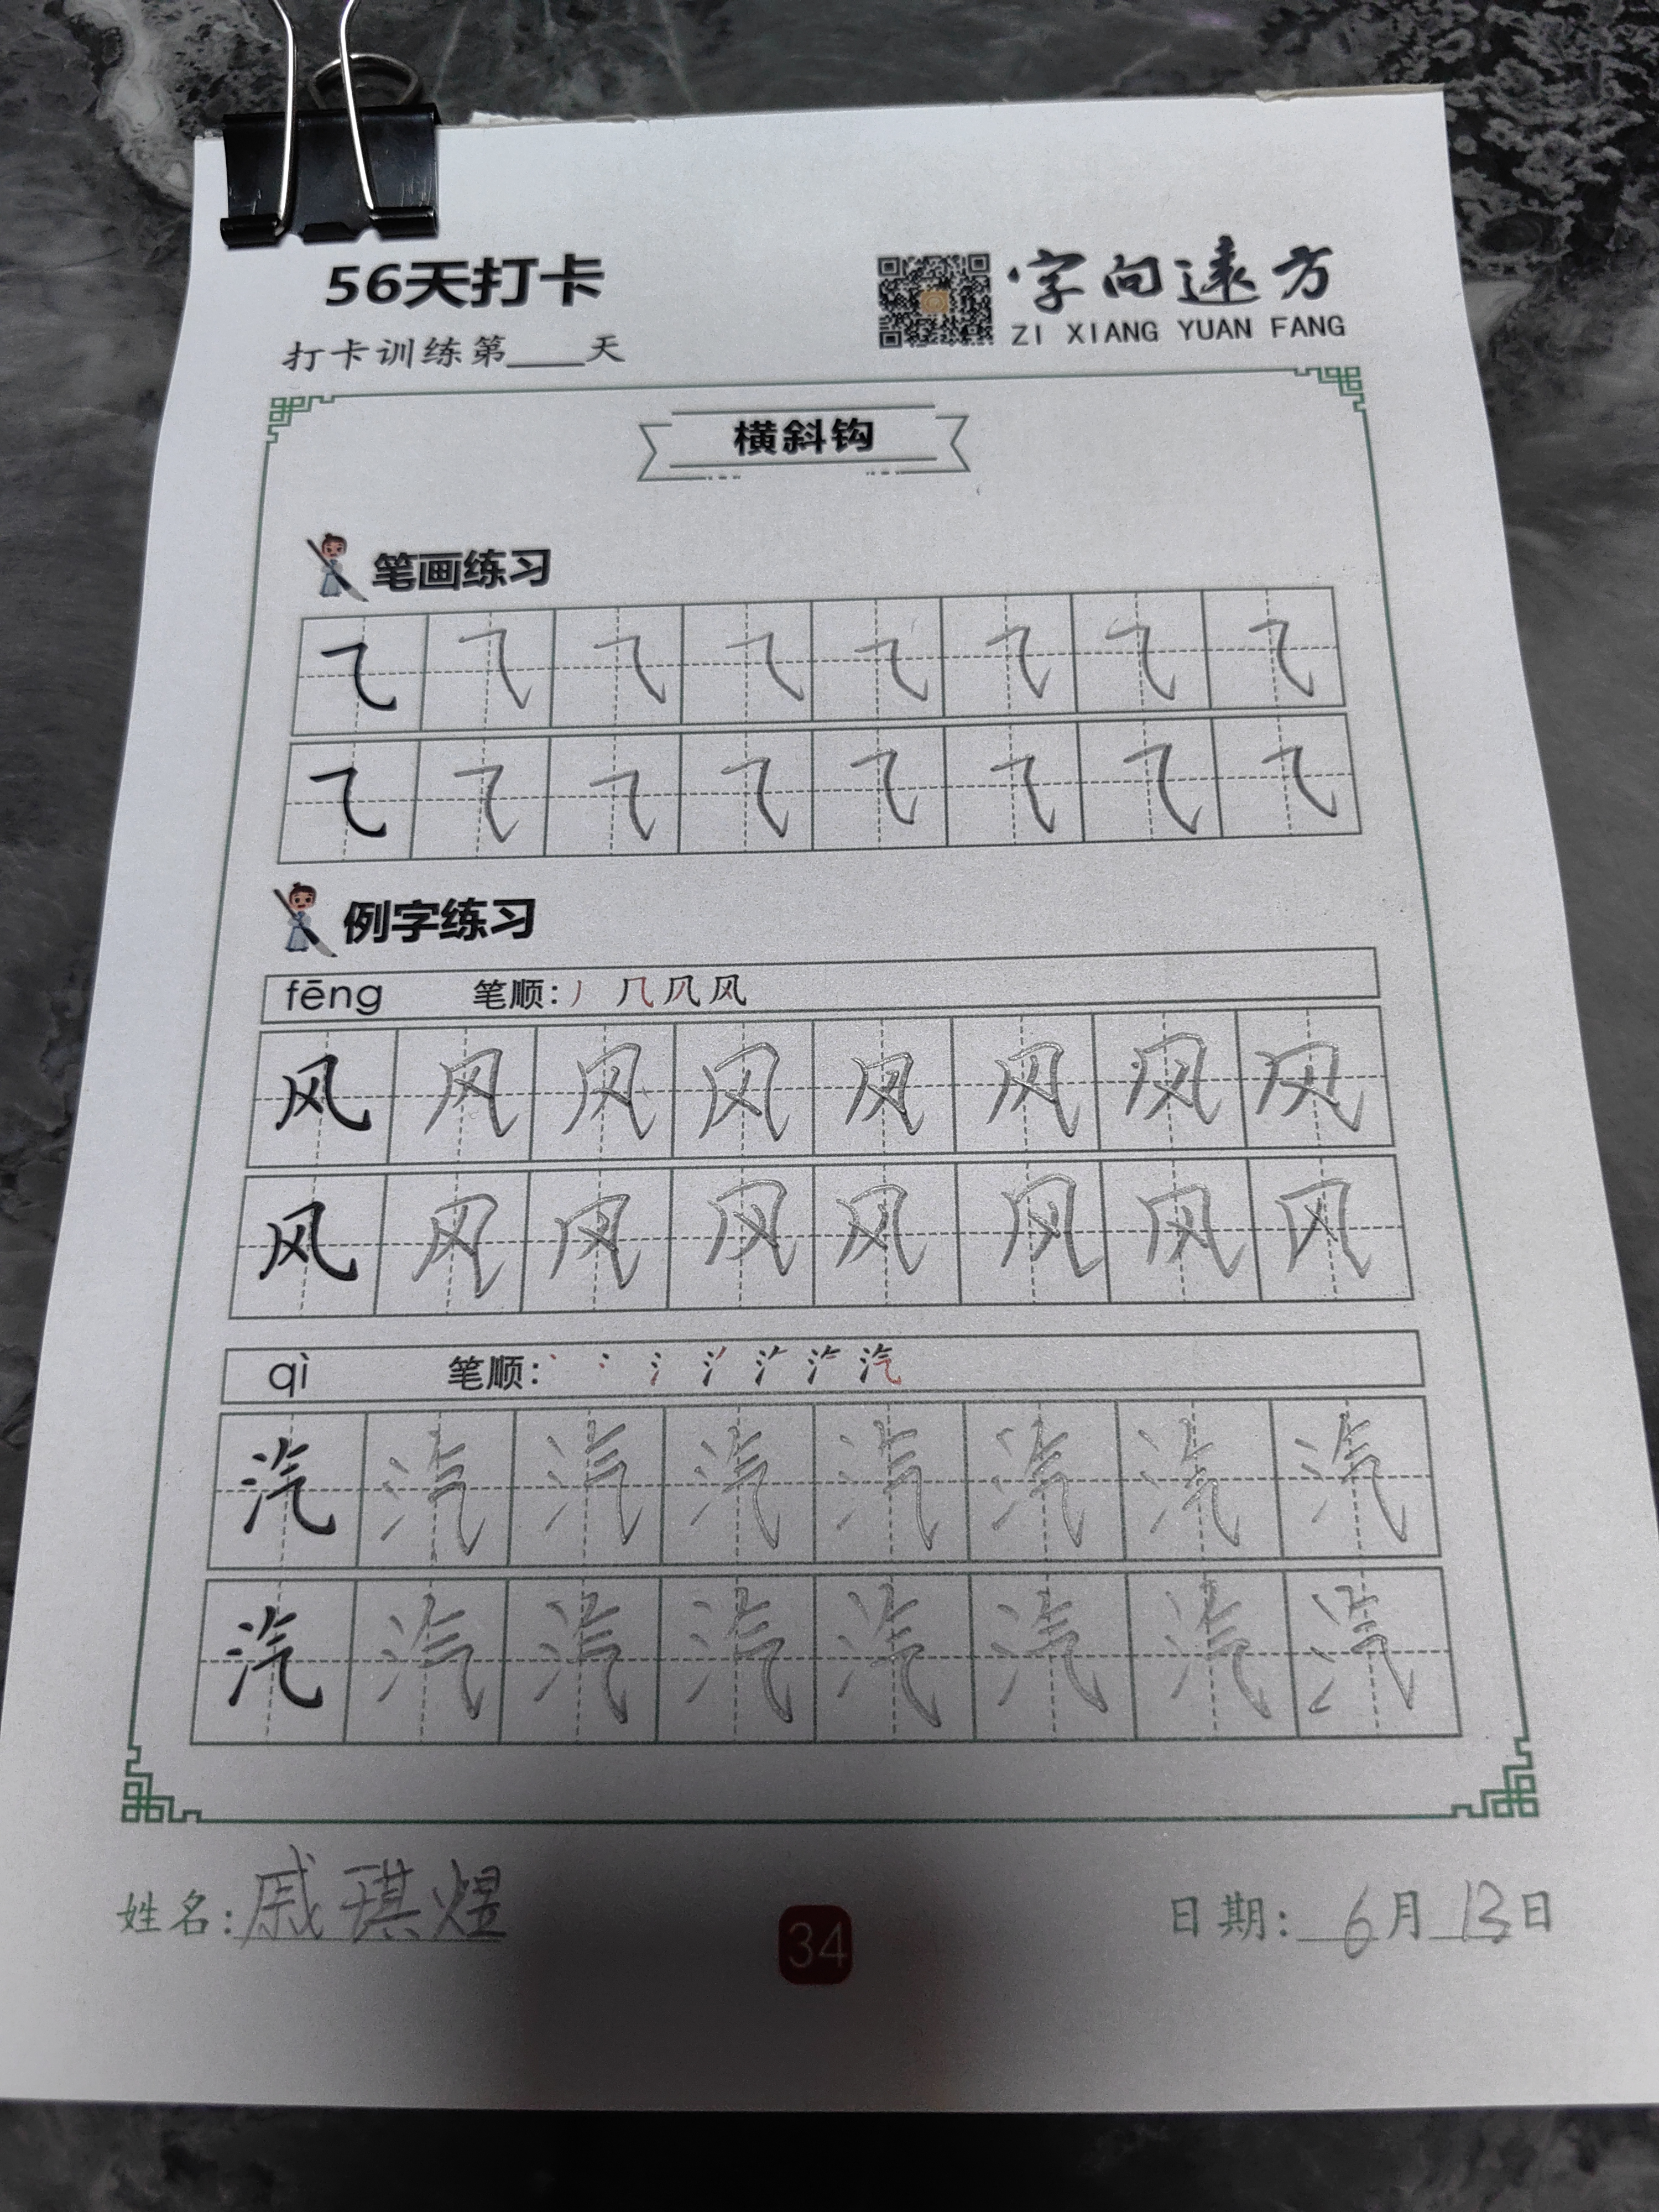 56天打卡
字向遠方
ZI XIANG YUAN FANG
打卡训练第____天
横斜钩
笔画练习
例字练习
fēng 笔顺: 丿 几 凤 风
风 风 风 风 风 风 风 风
风 风 风 风 风 风 风 风
qì 笔顺: 汽
汽 汽 汽 汽 汽 汽 汽 汽
汽 汽 汽 汽 汽 汽 汽 汽
姓名: 戚琪煜
34
日期: 6月13日